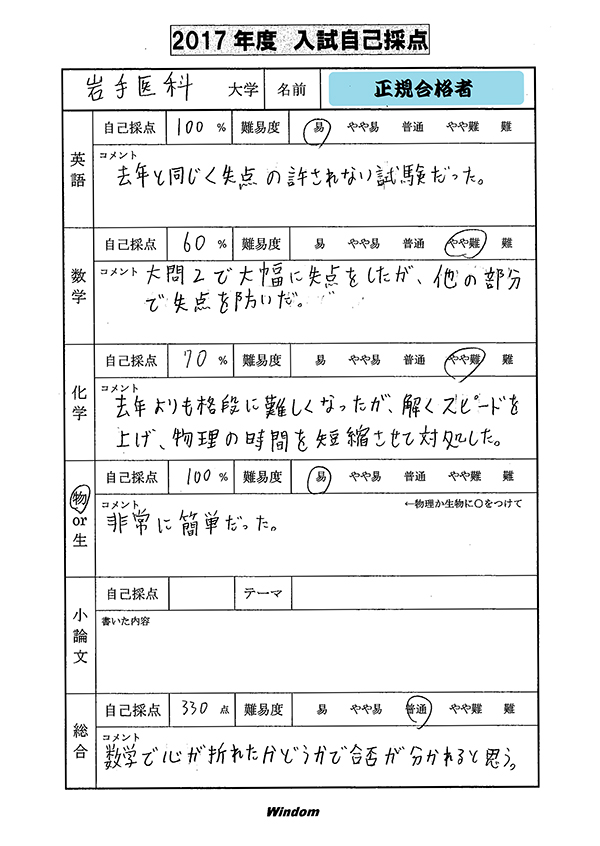 2017年度 入試自己採点
岩手医科 大学 名前 正規合格者
英語 自己採点 100 % 難易度 易 やや易 普通 やや難 難
コメント
去年と同じく失点の許されない試験だった。
数学 自己採点 60 % 難易度 易 やや易 普通 やや難 難
コメント 大問2で大幅に失点をしたが、他の部分
で失点を防いだ。
化学 自己採点 70 % 難易度 易 やや易 普通 やや難 難
コメント
去年よりも格段に難しくなったが、解くスピードを
上げ、物理の時間を短縮させて対処した。
物or生 自己採点 100 % 難易度 易 やや易 普通 やや難 難
コメント ←物理か生物に○をつけて
非常に簡単だった。
小論文 自己採点 テーマ
書いた内容
総合 自己採点 330 点 難易度 易 やや易 普通 やや難 難
コメント
数学で心が折れたかどうかで合否が分かれると思う。
Windom